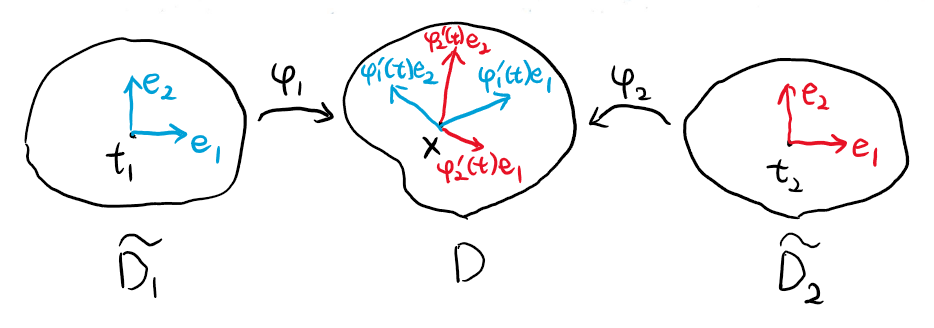 e₂
e₁
t₁
φ₁
φ₂'(t)e₂
φ₁'(t)e₂
φ₁'(t)e₁
x
φ₂'(t)e₁
φ₂
e₂
e₁
t₂
D̃₁
D
D̃₂